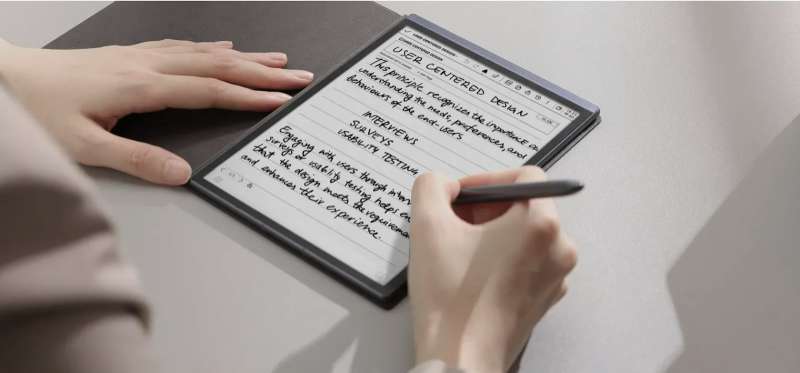 USER CENTERED DESIGN
USER CENTERED DESIGN
This principle recognizes the importance
understanding the needs, preferences, and
behaviours of the end-users
INTERVIEWS
SURVEYS
USABILITY TESTING
Engaging with users through
surveys or usability testing helps
that the design meets the
and enhances their experience.